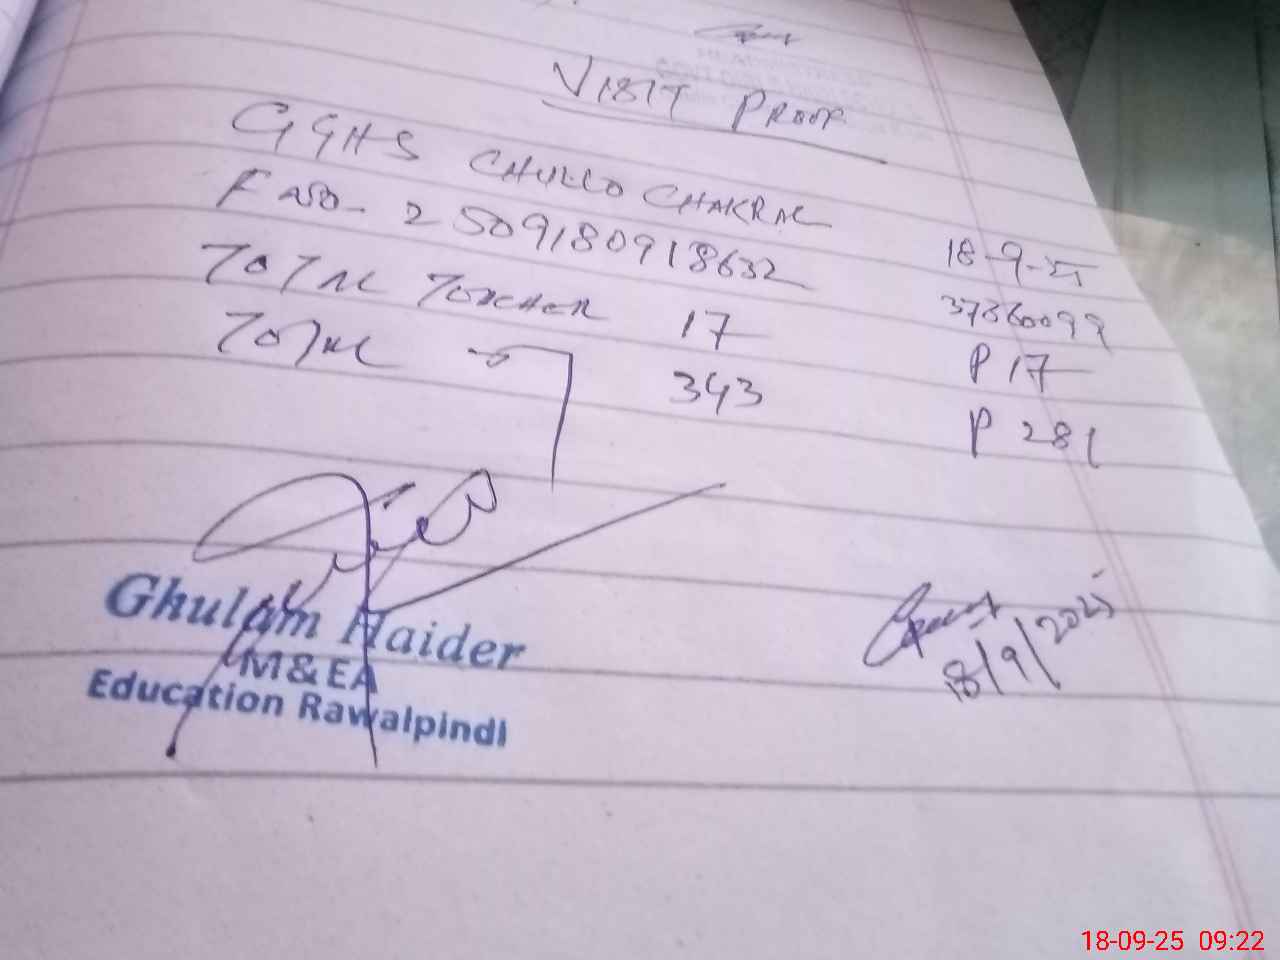 VISIT PROOF
GGHS CHULLO CHAKRAL 18-9-25
F NO- 2509180918632 37360099
TOTAL TEACHER 17 P 17
TOTAL 343 P 281
Ghulam Haider
M&EA
Education Rawalpindi
18/9/2025
18-09-25 09:22